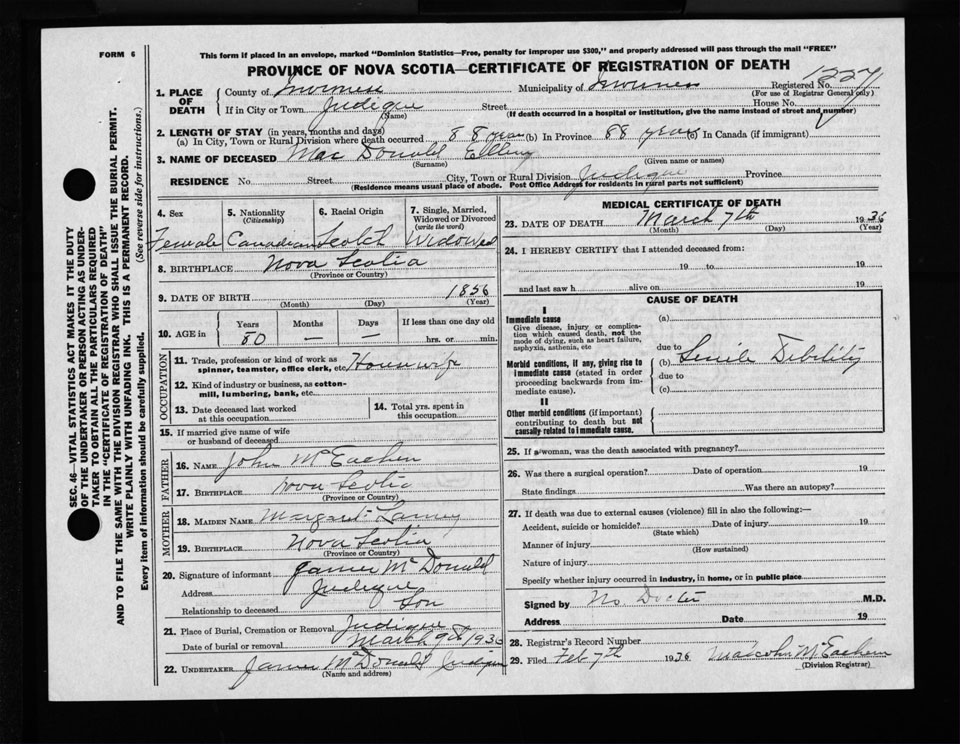 FORM 6
This form if placed in an envelope, marked "Dominion Statistics—Free, penalty for improper use $300," and properly addressed will pass through the mail "FREE"
PROVINCE OF NOVA SCOTIA—CERTIFICATE OF REGISTRATION OF DEATH
SEC. 46—VITAL STATISTICS ACT MAKES IT THE DUTY
OF THE UNDERTAKER OR PERSON ACTING AS UNDER-
TAKER TO OBTAIN ALL THE PARTICULARS REQUIRED
IN THE "CERTIFICATE OF REGISTRATION OF DEATH"
AND TO FILE THE SAME WITH THE DIVISION REGISTRAR WHO SHALL ISSUE THE BURIAL PERMIT.
WRITE PLAINLY WITH UNFADING INK. THIS IS A PERMANENT RECORD.
Every item of information should be carefully supplied. (See reverse side for instructions.)
1. PLACE OF DEATH County of Inverness Municipality of Inverness Registered No. 1227
(For use of Registrar General only)
If in City or Town Judique Street House No.
(Name) (If death occurred in a hospital or institution, give the name instead of street and number)
2. LENGTH OF STAY (in years, months and days)
(a) In City, Town or Rural Division where death occurred 88 years (b) In Province 88 years (c) In Canada (if immigrant)
3. NAME OF DECEASED Mac Donald Ellen
(Surname) (Given name or names)
RESIDENCE No. Street City, Town or Rural Division Judique Province
(Residence means usual place of abode. Post Office Address for residents in rural parts not sufficient)
4. Sex 5. Nationality (Citizenship) 6. Racial Origin 7. Single, Married, Widowed or Divorced (write the word)
Female Canadian Scotch Widowed
8. BIRTHPLACE Nova Scotia
(Province or Country)
9. DATE OF BIRTH 1856
(Month) (Day) (Year)
10. AGE in Years Months Days If less than one day old
80 — — hrs. or min.
OCCUPATION
11. Trade, profession or kind of work as spinner, teamster, office clerk, etc. Housewife
12. Kind of industry or business, as cotton-mill, lumbering, bank, etc.
13. Date deceased last worked at this occupation 14. Total yrs. spent in this occupation
15. If married give name of wife or husband of deceased
FATHER
16. NAME John McEachen
17. BIRTHPLACE Nova Scotia
(Province or Country)
MOTHER
18. MAIDEN NAME Margaret
19. BIRTHPLACE Nova Scotia
(Province or Country)
20. Signature of informant James McDonald
Address Judique
Relationship to deceased Son
21. Place of Burial, Cremation or Removal Judique
Date of burial or removal March 9th 1936
22. UNDERTAKER James McDonald Judique
(Name and address)
MEDICAL CERTIFICATE OF DEATH
23. DATE OF DEATH March 7th 1936
(Month) (Day) (Year)
24. I HEREBY CERTIFY that I attended deceased from:
19 to 19
and last saw h alive on 19
CAUSE OF DEATH
I
Immediate cause (a)
Give disease, injury or complication which caused death, not the mode of dying, such as heart failure, asphyxia, asthenia, etc due to
Morbid conditions, if any, giving rise to immediate cause (stated in order proceeding backwards from immediate cause). (b) Senile Debility
due to
(c)
II
Other morbid conditions (if important) contributing to death but not causally related to immediate cause.
25. If a woman, was the death associated with pregnancy?
26. Was there a surgical operation? Date of operation 19
State findings Was there an autopsy?
27. If death was due to external causes (violence) fill in also the following:—
Accident, suicide or homicide? Date of injury 19
(State which)
Manner of injury
(How sustained)
Nature of injury
Specify whether injury occurred in industry, in home, or in public place
Signed by No Doctor M.D.
Address Date 19
28. Registrar's Record Number
29. Filed Feb 7th 1936 Malcolm McEachern
(Division Registrar)